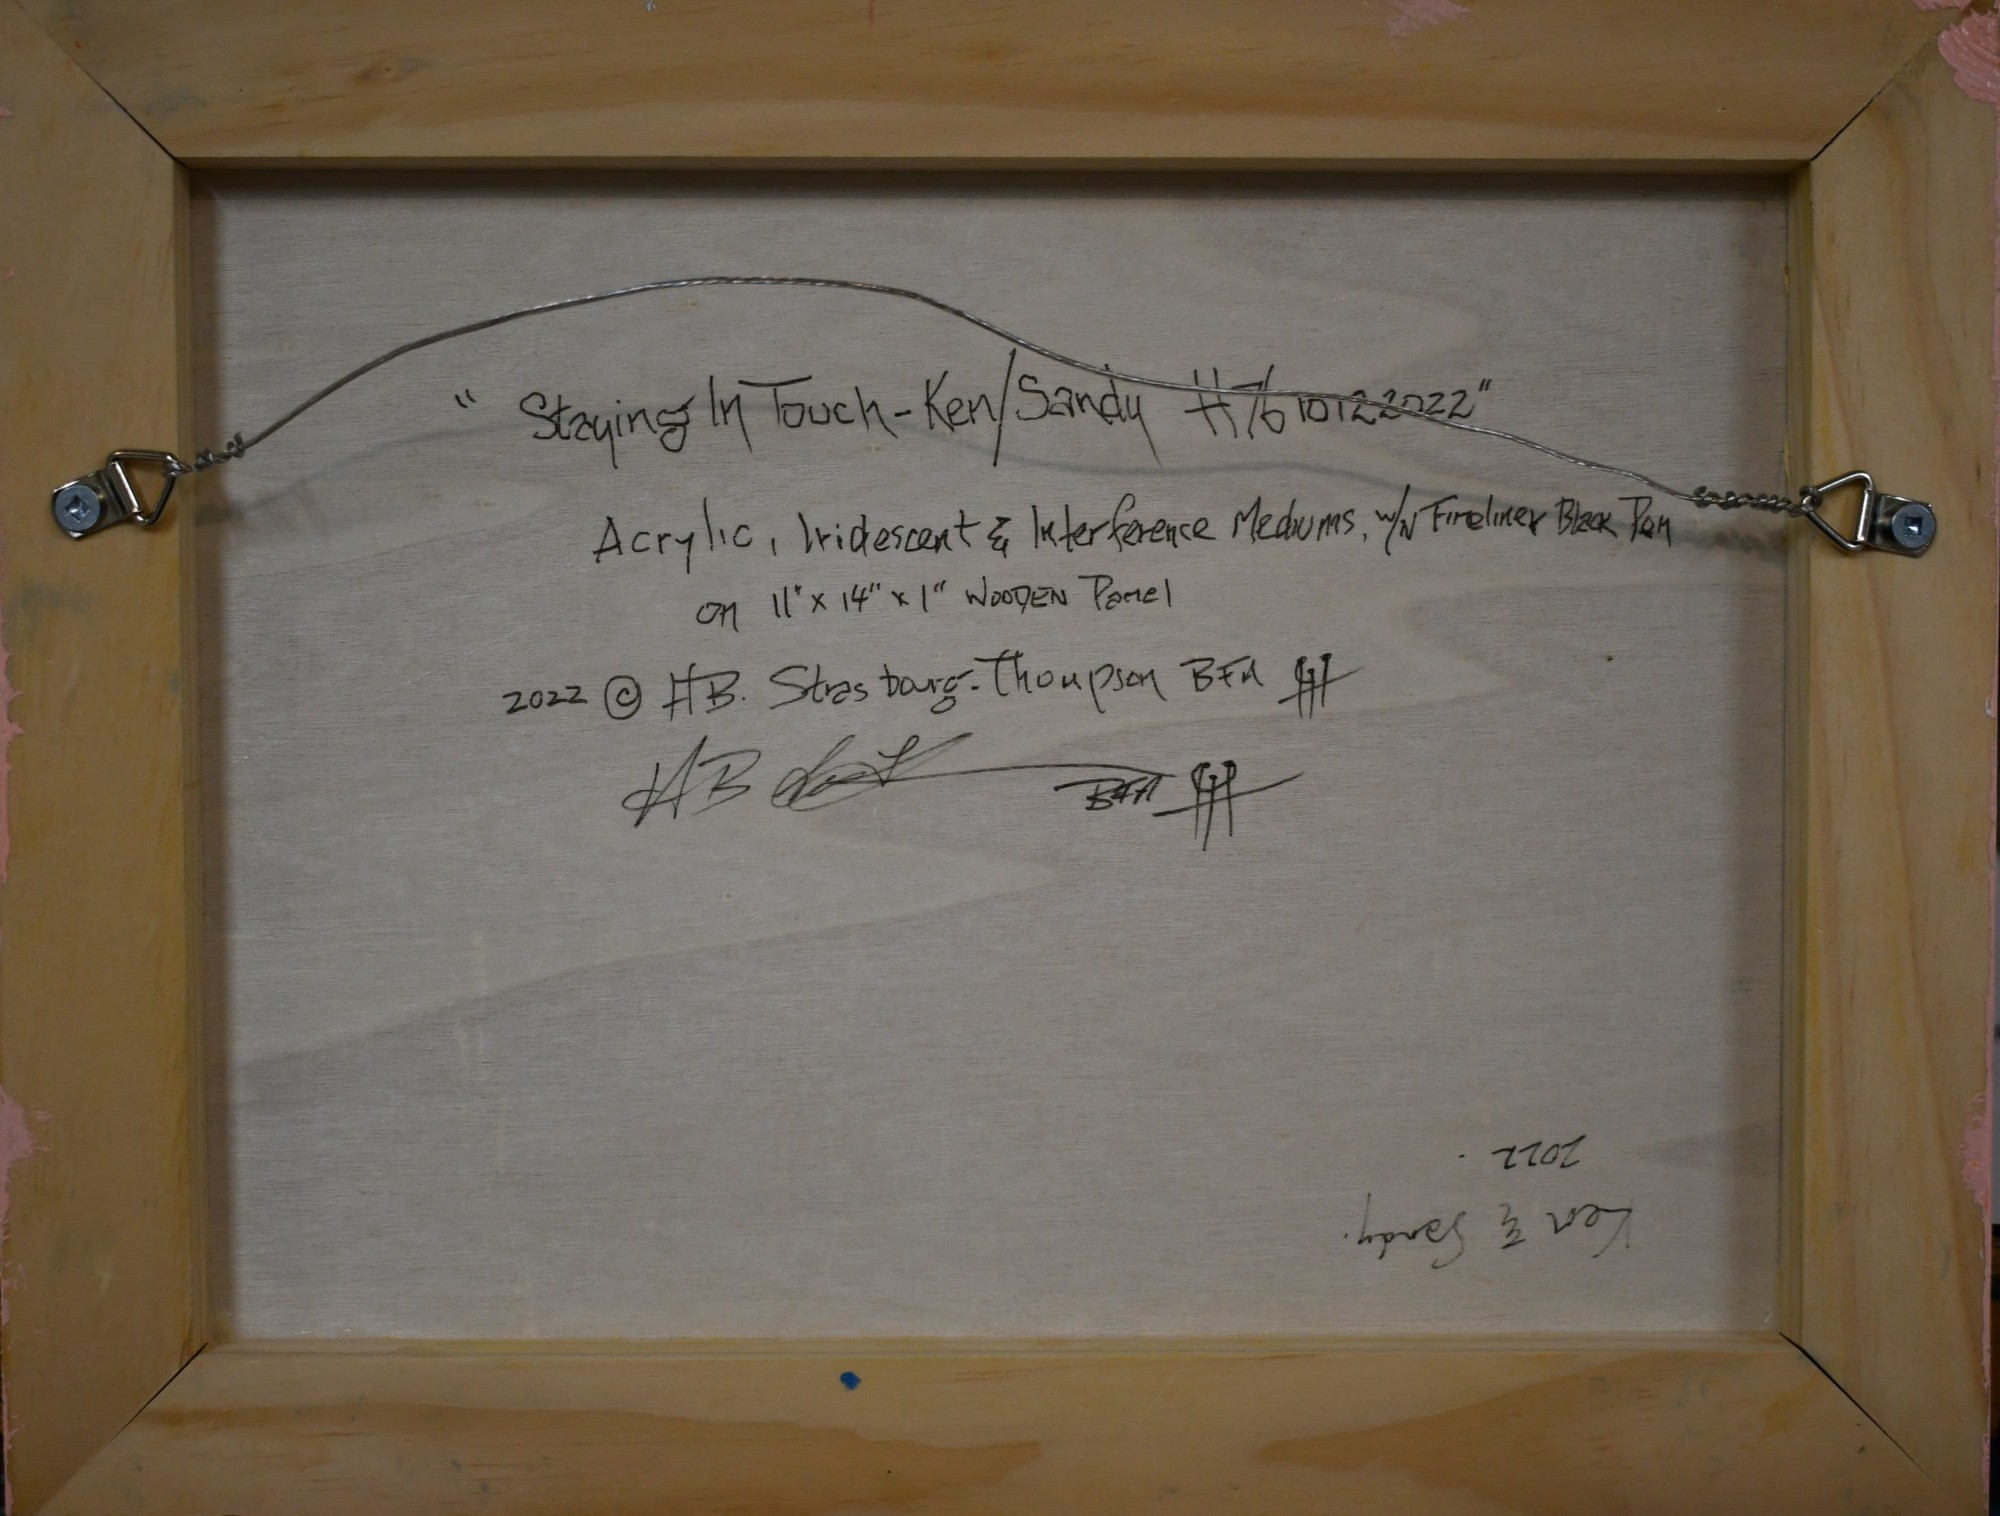 "Staying In Touch - Ken/Sandy #76 10122022"
Acrylic, Iridescent & Interference Mediums, w/ Fineliner Black Pen
on 11" x 14" x 1" WOODEN Panel
2022 © HB. Strasbourg-Thompson BFA
HB BFA
Ken & Sandy.
2022.